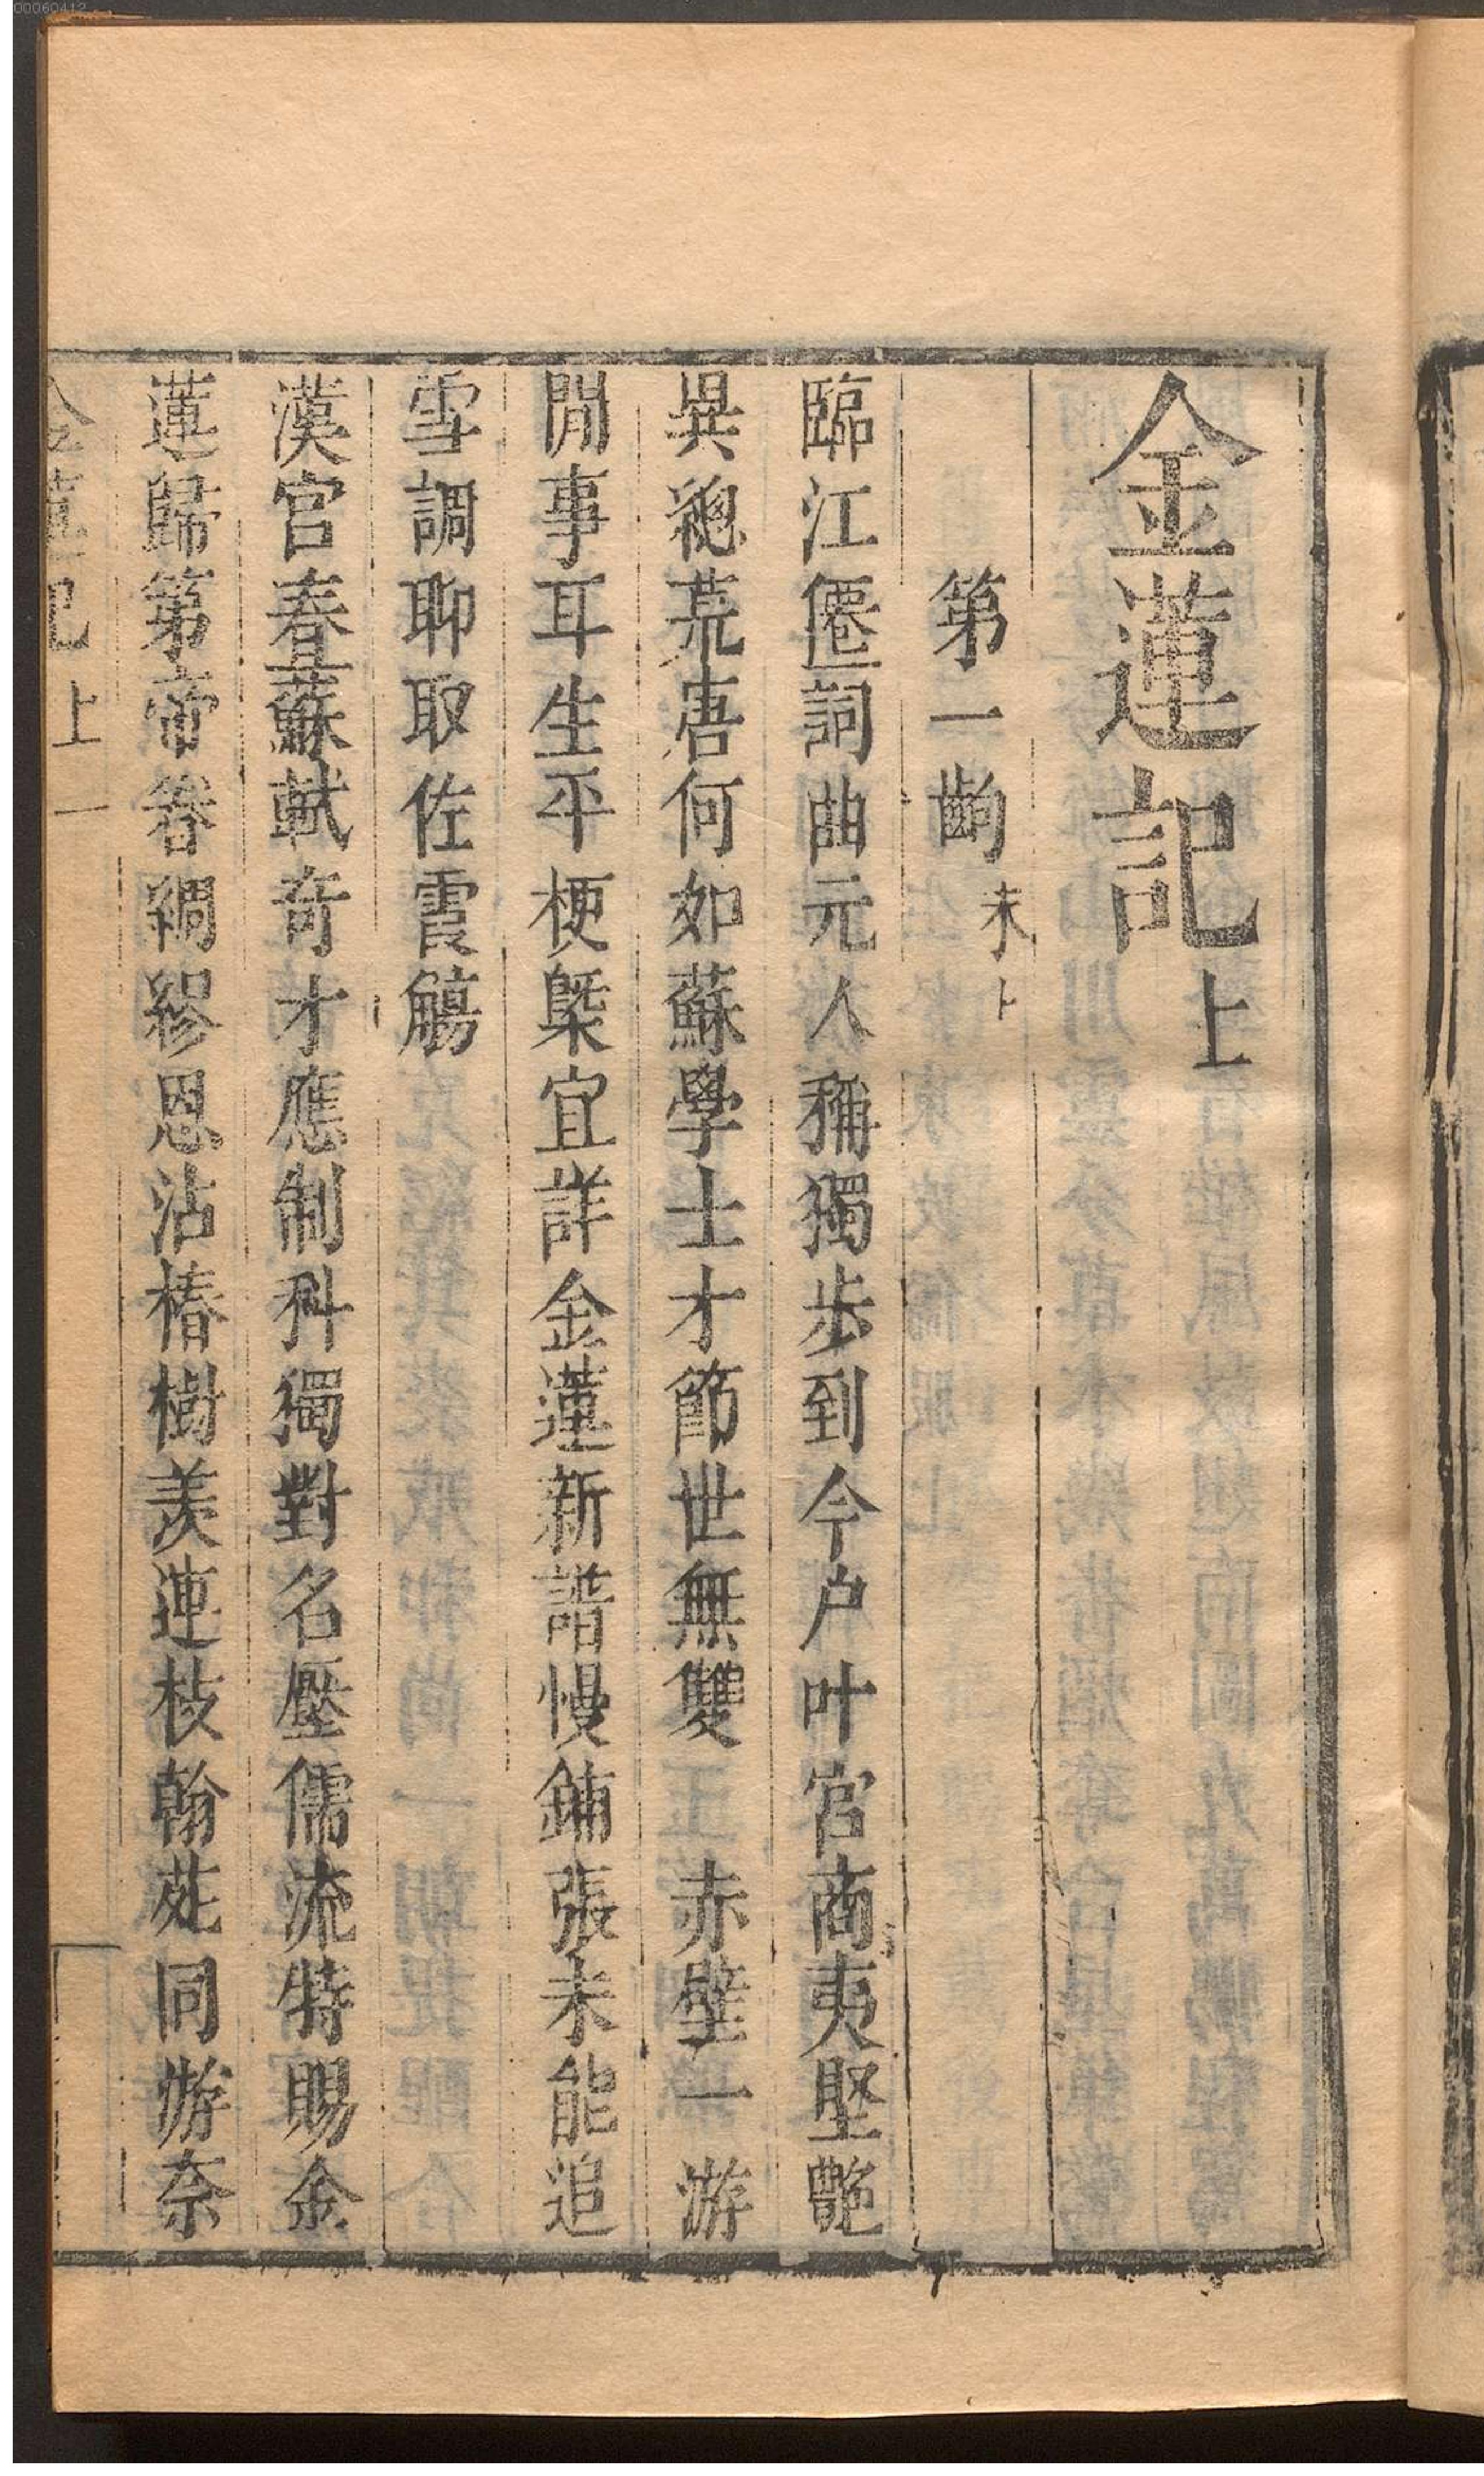 金蓮記上
第一齣末上
臨江僊詞曲元人稱獨步到今户叶宫商夷堅艷
異總荒唐何如蘇學士才節世無雙赤壁一游
閒事耳生平梗槩宜詳金蓮新譜慢鋪張未能追
雪調聊取佐霞觴
漢宮春蘇軾奇才應制科獨對名壓儒流特賜金
蓮歸第帝眷綢繆恩沾椿樹羨連枝翰苑同游奈
金蓮記 上 一
00060412